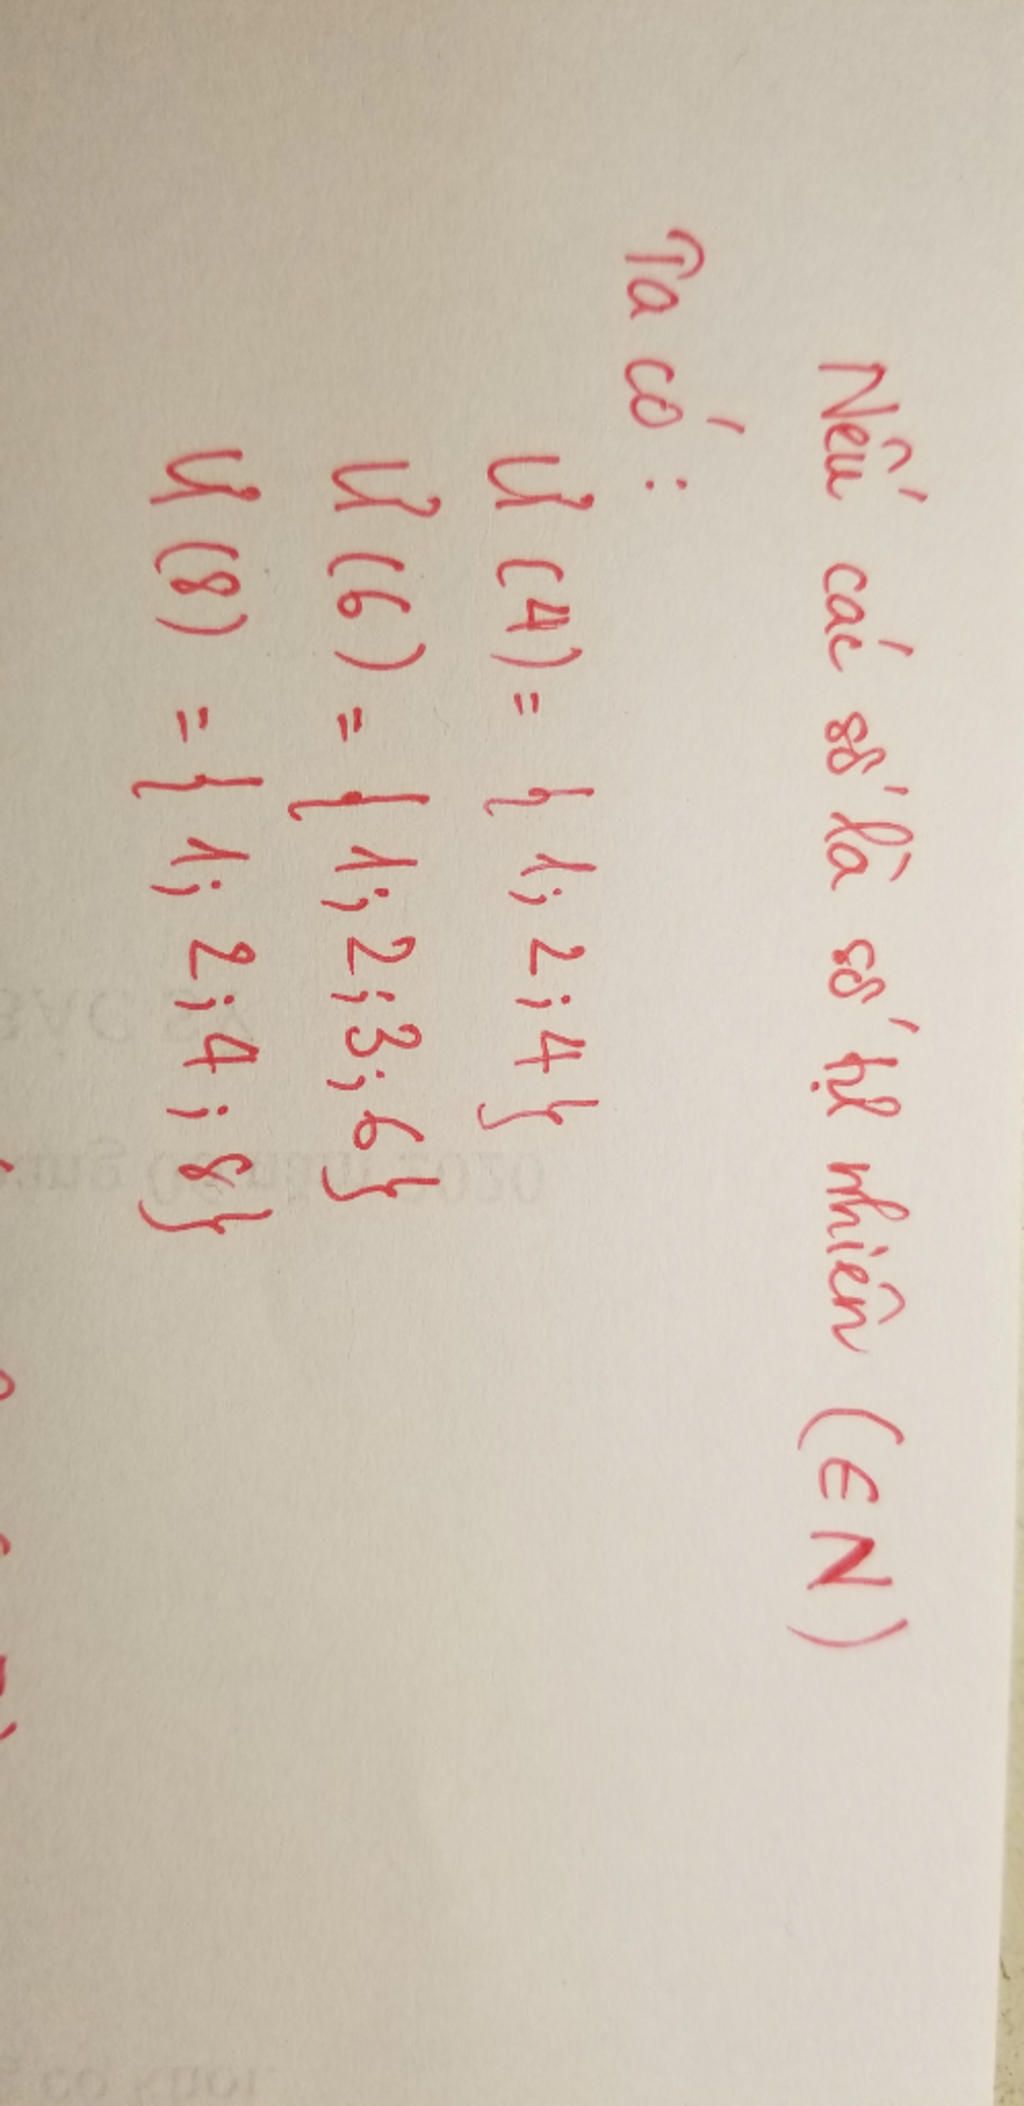 Nếu các số là số tự nhiên (∈ N)
Ta có :
Ư (4) = { 1; 2; 4}
Ư (6) = { 1; 2; 3; 6}
Ư (8) = { 1; 2; 4; 8}